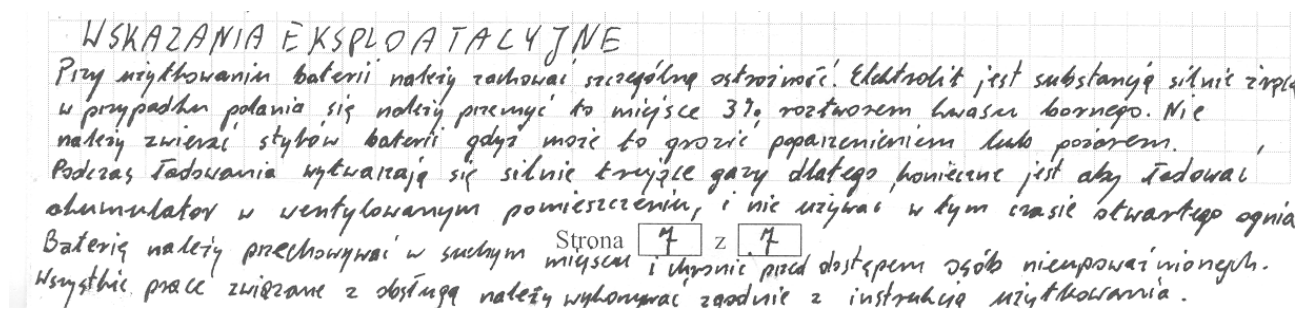 WSKAZANIA EKSPLOATACYJNE
Przy użytkowaniu baterii należy zachować szczególną ostrożność. Elektrolit jest substancją silnie żrącą
w przypadku polania się należy przemyć to miejsce 3% roztworem kwasu bornego. Nie
należy zwierać styków baterii gdyż może to grozić poparzenieniem lub pożarem.
Podczas ładowania wytwarzają się silnie trujące gazy dlatego konieczne jest aby ładować
akumulator w wentylowanym pomieszczeniu, i nie używać w tym czasie otwartego ognia
Strona 7 z 7
Baterię należy przechowywać w suchym miejscu i chronić przed dostępem osób nieupoważnionych.
Wszystkie prace związane z obsługą należy wykonywać zgodnie z instrukcją użytkowania.